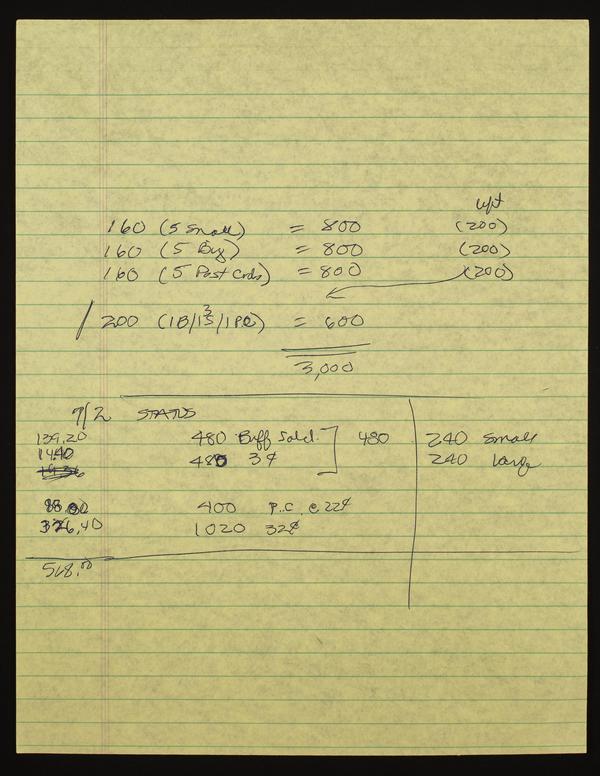 wpt
160 (5 Small) = 800 (200)
160 (5 Big) = 800 (200)
160 (5 Post Cards) = 800 (200)
/ 200 (1B/1S/1PC) = 600
3,000
9/2 STATUS
139.20 480 Buff Sold. 480 240 Small
14.40 480 3¢ 240 large
88.00 400 P.C. @ 22¢
326.40 1020 32¢
568.00